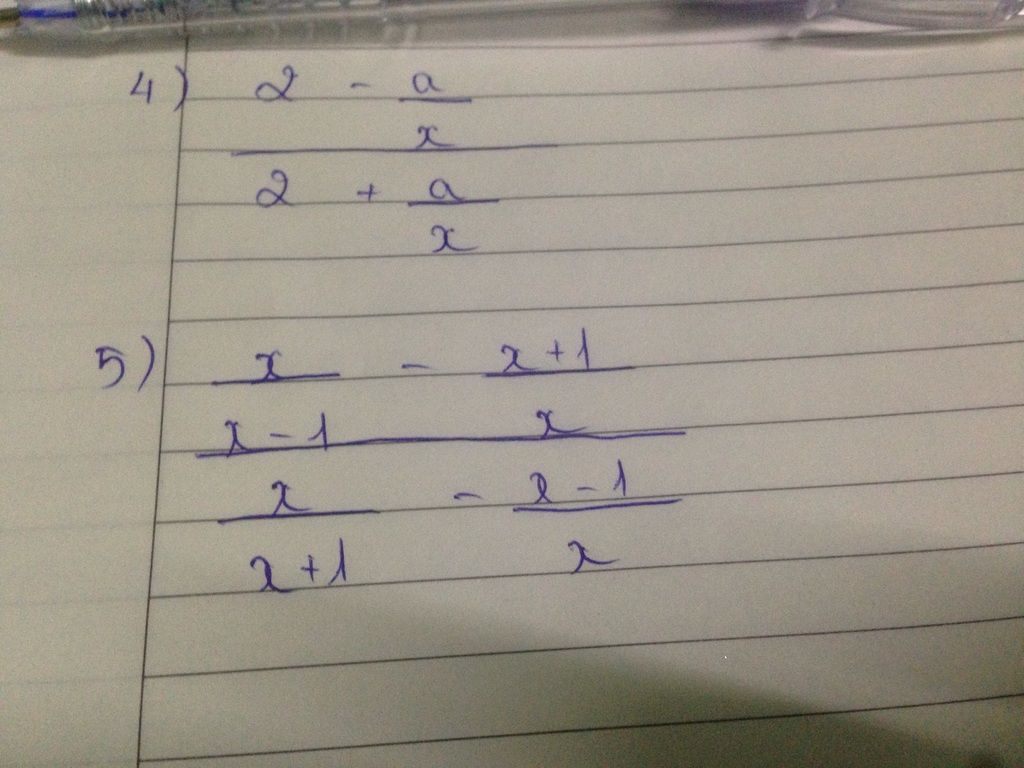 4) 2 - a
x
2 + a
x
5) x - x+1
x-1 x
x - x-1
x+1 x